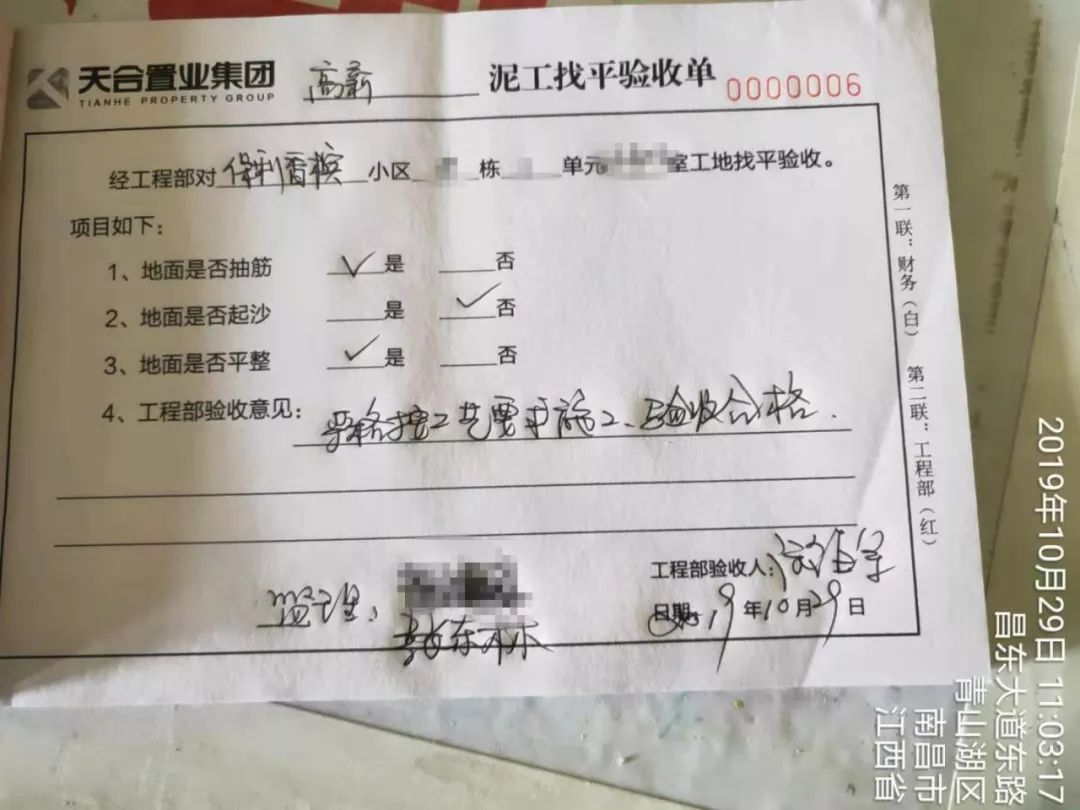 天合置业集团
TIANHE PROPERTY GROUP
高新
泥工找平验收单
0000006
经工程部对保利香槟小区 栋 单元 室工地找平验收。
项目如下：
1、地面是否抽筋 ✓是 否
2、地面是否起沙 是 ✓否
3、地面是否平整 ✓是 否
4、工程部验收意见：严格按工艺要求施工、验收合格.
监理：
工程部验收人：
日期：19年10月29日
第一联：财务（白）
第二联：工程部（红）
2019年10月29日 11:03:17
昌东大道东路
青山湖区
南昌市
江西省